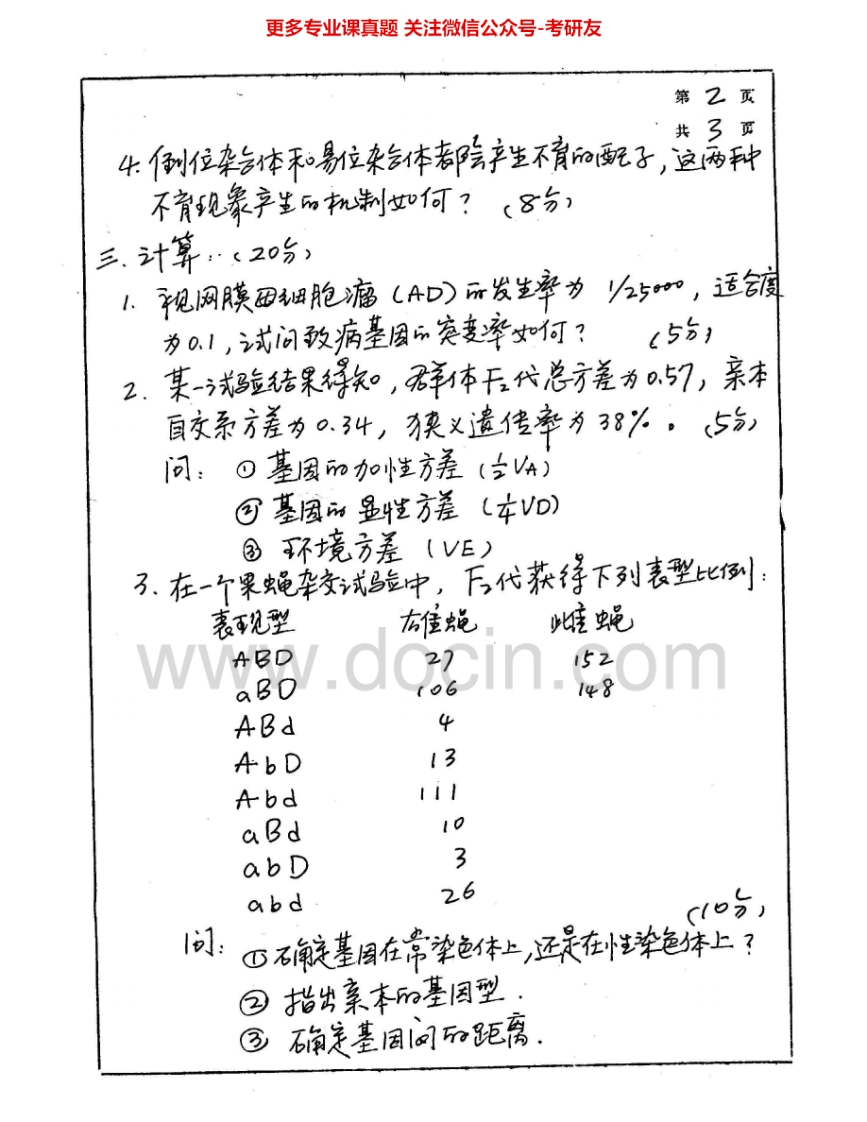 更多专业课真题 关注微信公众号-考研友
第 2 页
共 3 页
4. 倒位杂合体和易位杂合体都会产生不育的配子,这两种
不育现象产生的机制如何? (8分)
三. 计算: (20分)
1. 视网膜母细胞瘤 (AD) 的发生率为 1/25000, 适合度
为0.1, 试问致病基因的突变率如何? (5分)
2. 某一试验结果得知, 群体F₂代总方差为0.57, 亲本
自交系方差为0.34, 狭义遗传率为38%。 (5分)
问: ① 基因的加性方差 (½VA)
② 基因的显性方差 (¼VD)
③ 环境方差 (VE)
3. 在一个果蝇杂交试验中, F₂代获得下列表型比例:
表现型 雄蝇 雌蝇
ABD 27 152
aBD 106 148
ABd 4
AbD 13
Abd 111
aBd 10
abD 3
abd 26
(10分)
问: ① 确定基因在常染色体上,还是在性染色体上?
② 指出亲本的基因型.
③ 确定基因间的距离.
www.docin.com